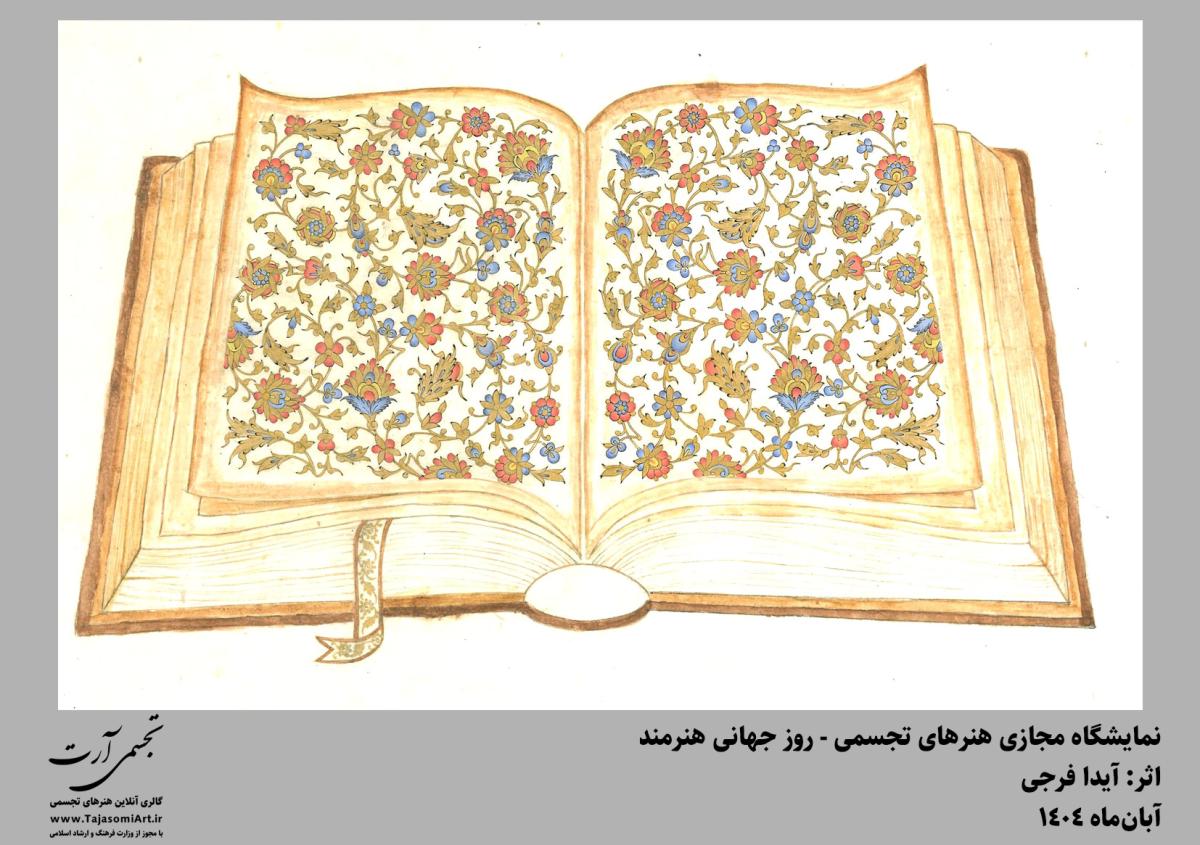 نمایشگاه مجازی هنرهای تجسمی - روز جهانی هنرمند
اثر: آیدا فرجی
آبان‌ماه ۱۴۰۴
تجسمی آرت
گالری آنلاین هنرهای تجسمی
www.TajasomiArt.ir
با مجوز از وزارت فرهنگ و ارشاد اسلامی